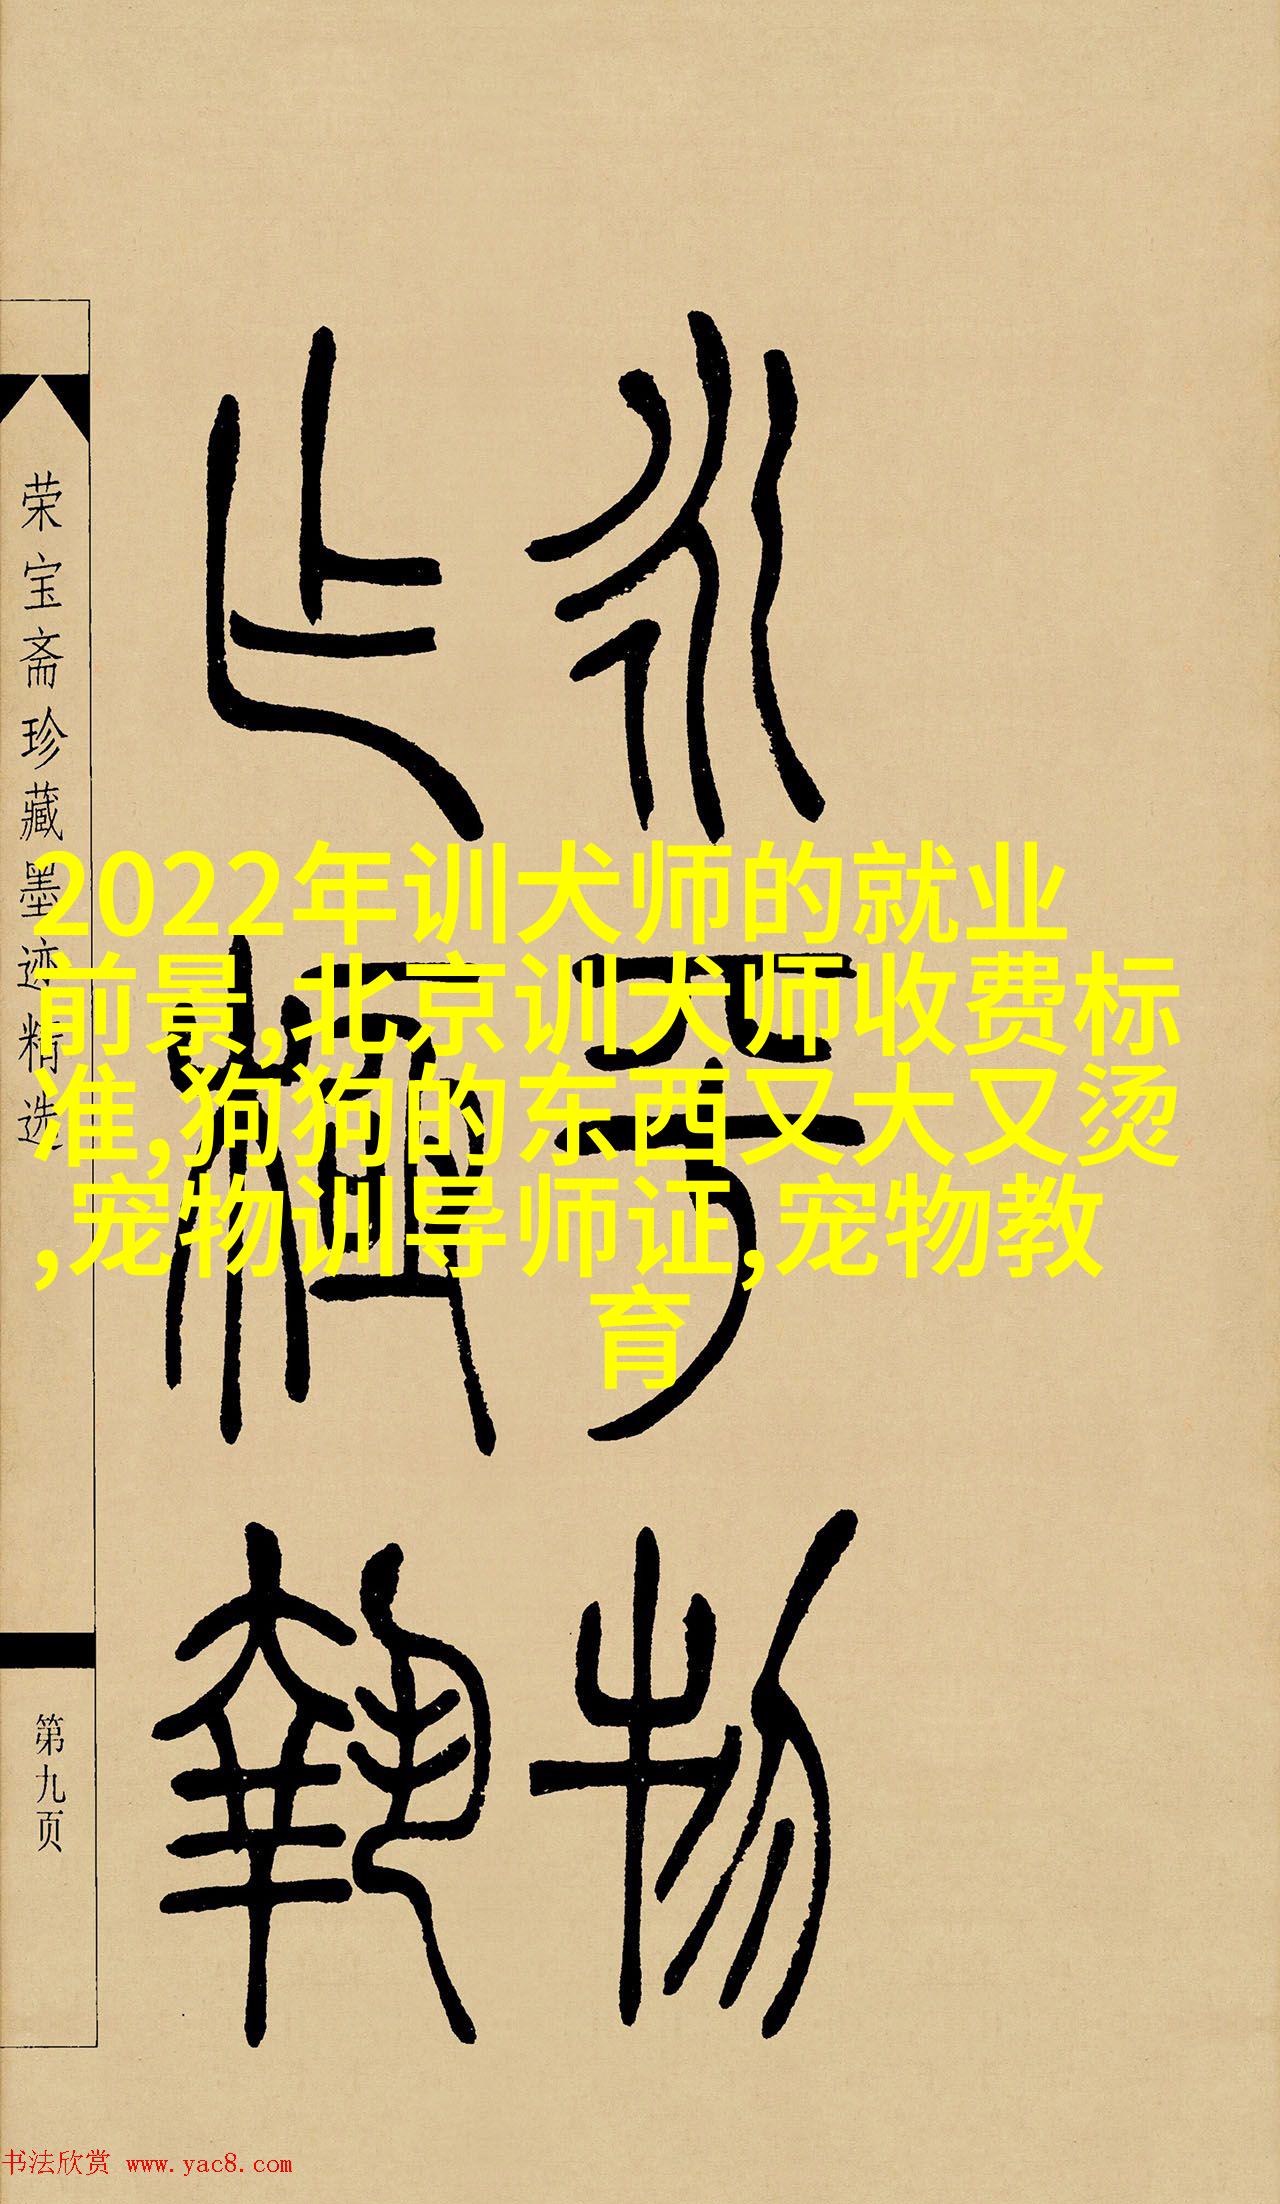 永物
極執
荣宝斋珍藏墨迹精选
第九页
2022年训犬师的就业
前景,北京训犬师收费标
准,狗狗的东西又大又烫
,宠物训导师证,宠物教
育
书法欣赏 www.yac8.com